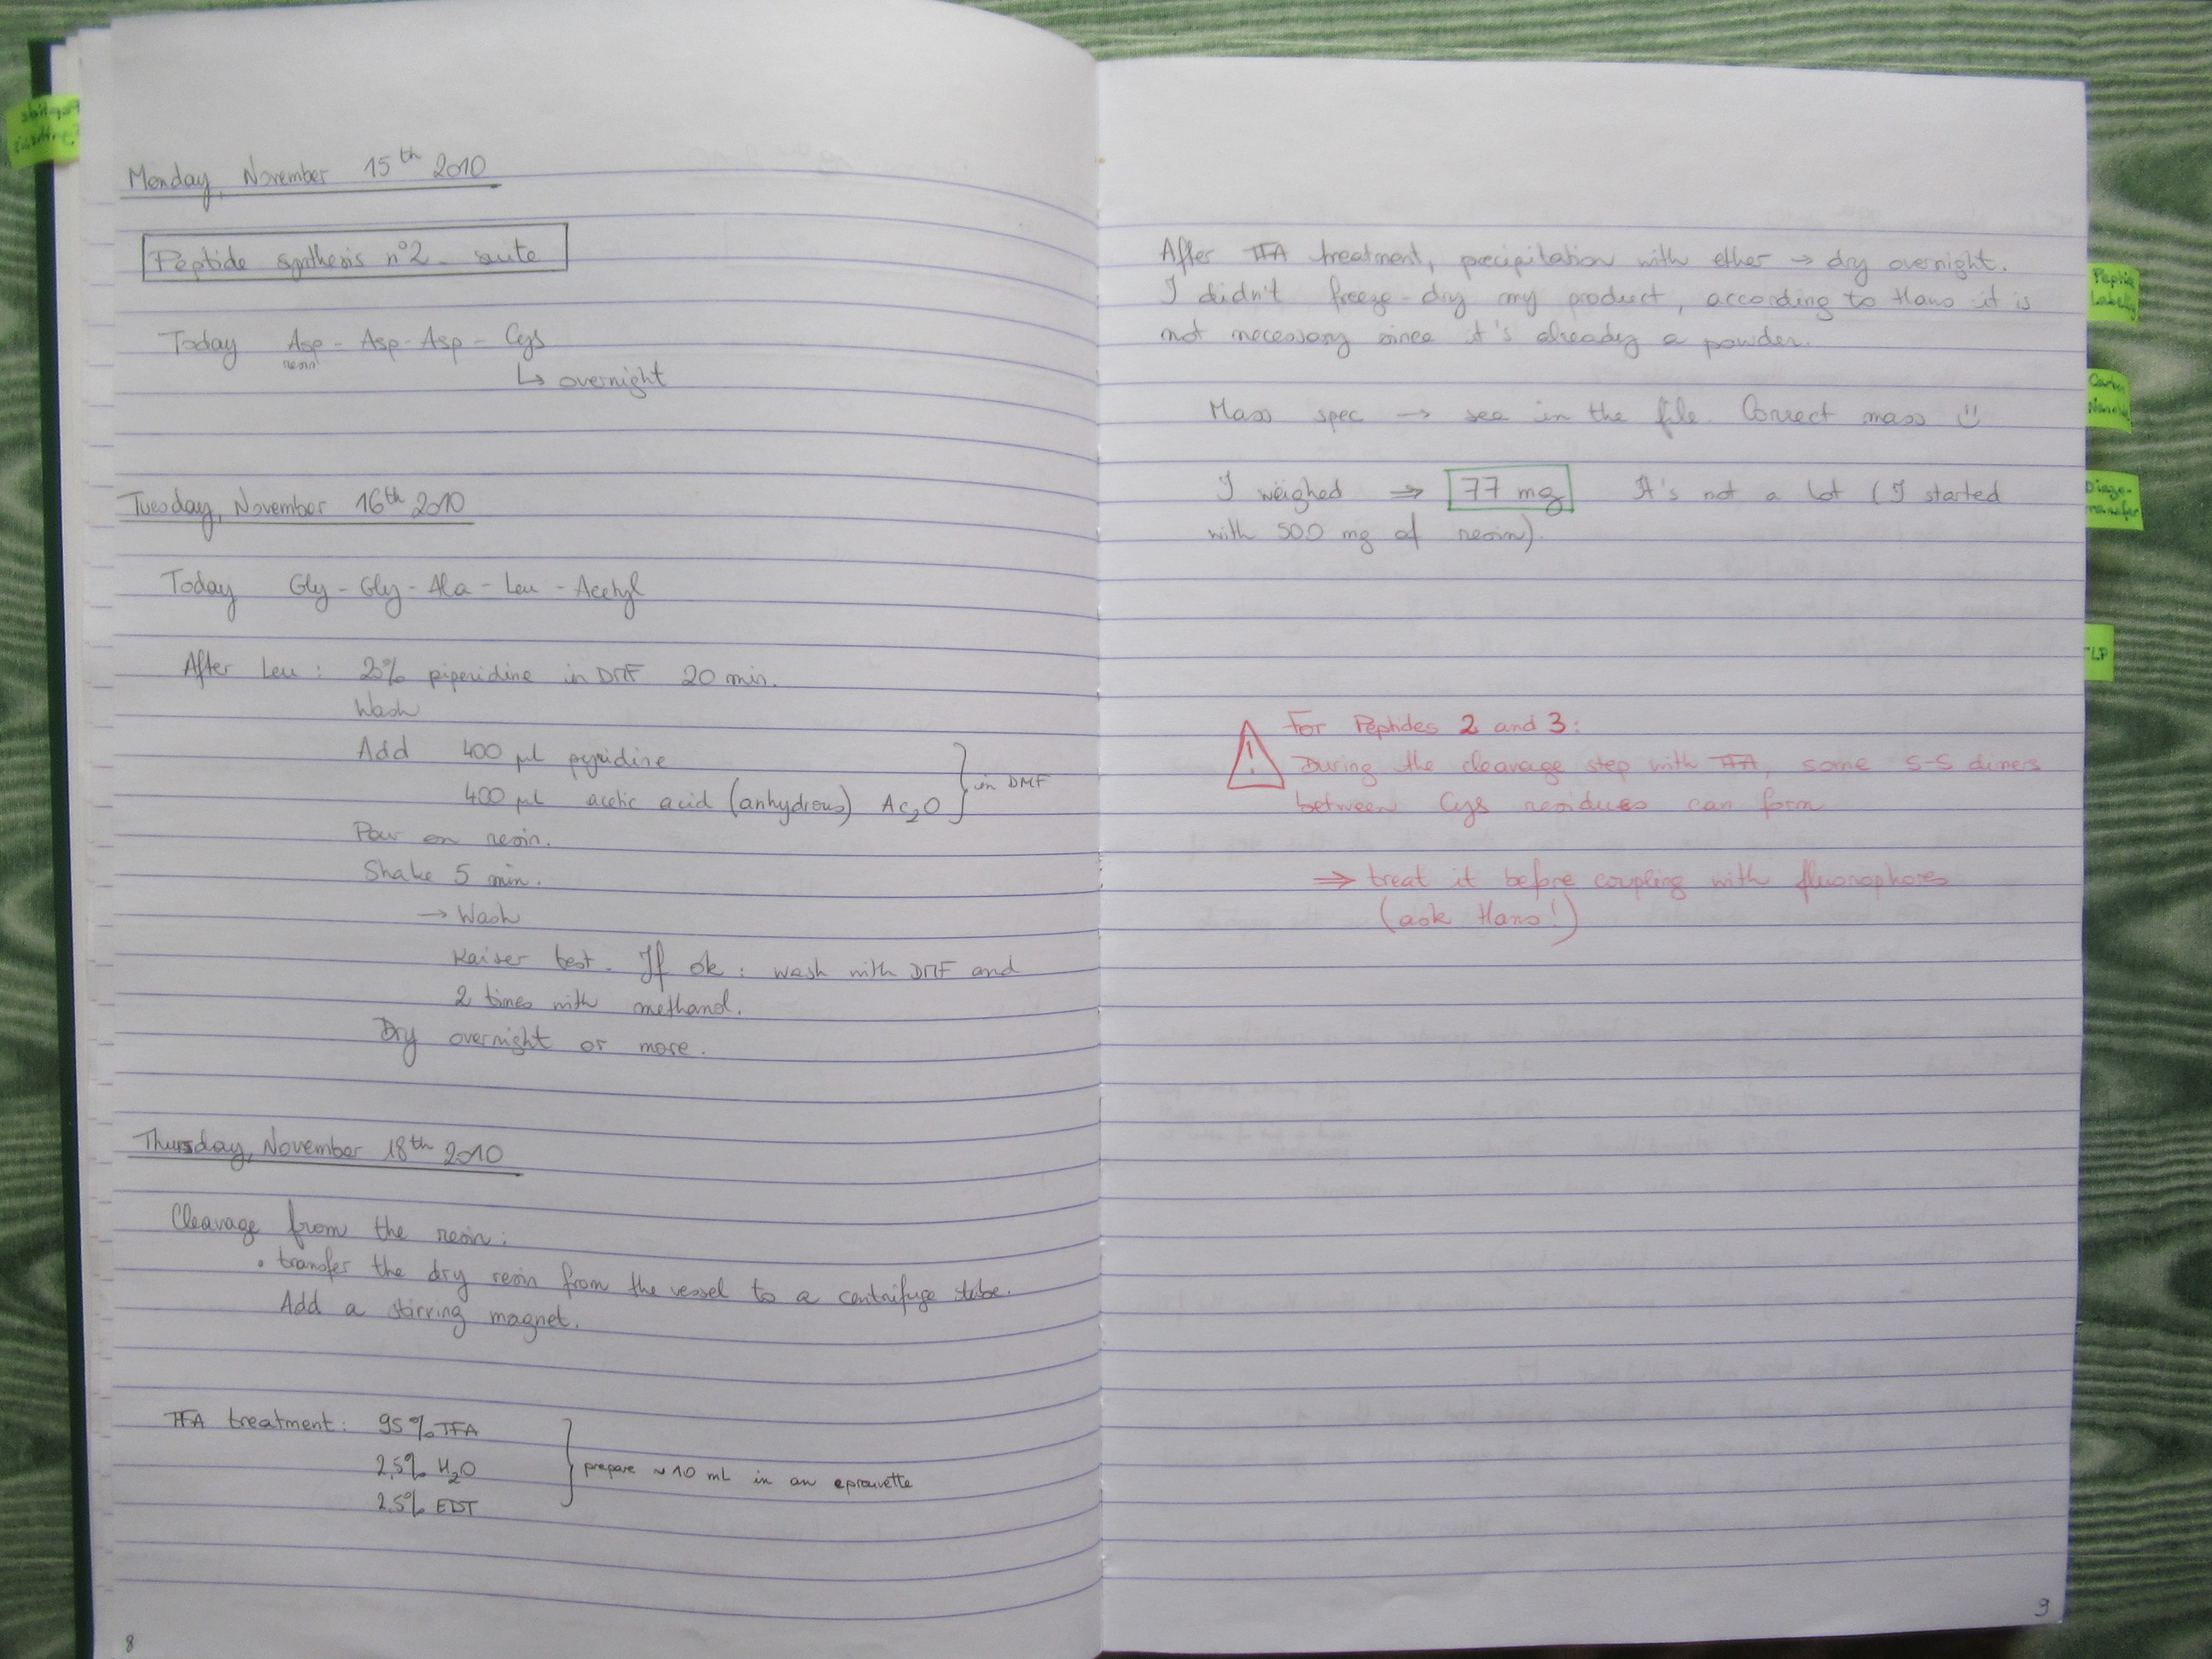 Monday, November 15th 2010
Peptide synthesis n°2 - suite
Today Asp - Asp - Asp - Cys
resin
↳ overnight
Tuesday, November 16th 2010
Today Gly - Gly - Ala - Leu - Acetyl
After Leu : 20% piperidine in DMF 20 min.
Wash
Add 400 µL pyridine
400 µL acetic acid (anhydrous) Ac2O } in DMF
Pour on resin.
Shake 5 min.
→ Wash
Kaiser test. If ok : wash with DMF and
2 times with methanol.
Dry overnight or more.
Thursday, November 18th 2010
Cleavage from the resin :
• transfer the dry resin from the vessel to a centrifuge tube.
Add a stirring magnet.
TFA treatment : 95% TFA
2,5% H2O } prepare ~10 mL in an eprouvette
2,5% EDT
8
After TFA treatment, precipitation with ether → dry overnight.
I didn't freeze-dry my product, according to Hans it is
not necessary since it's already a powder.
Mass spec → see in the file. Correct mass ☺
I weighed ⇒ 77 mg It's not a lot (I started
with 500 mg of resin).
⚠ For Peptides 2 and 3 :
During the cleavage step with TFA, some S-S dimers
between Cys residues can form
⇒ treat it before coupling with fluorophores
(ask Hans!)
9
Peptide
Labeling
Carbon
TLP